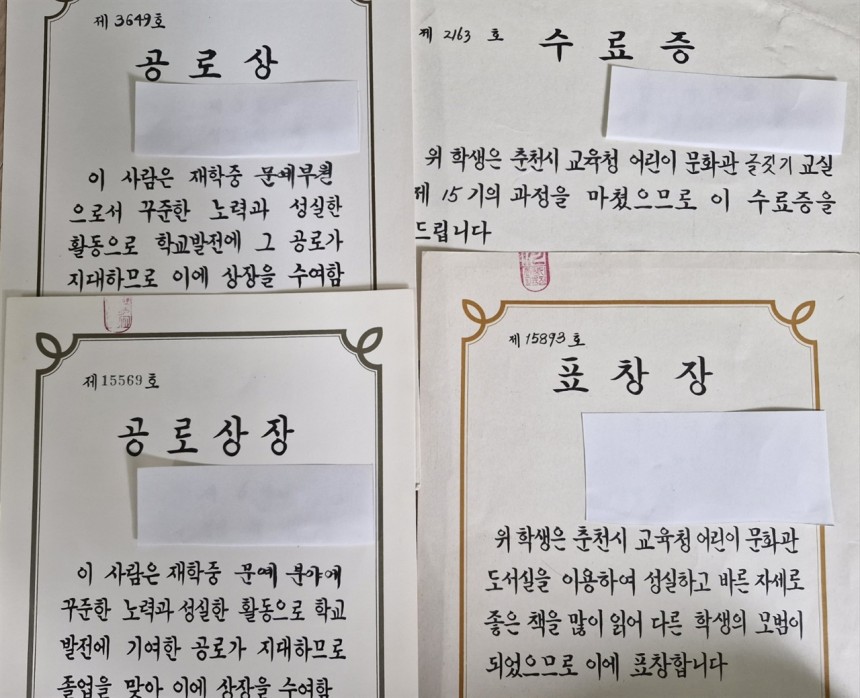 제 3649호
공로상
이 사람은 재학중 문예부원
으로서 꾸준한 노력과 성실한
활동으로 학교발전에 그 공로가
지대하므로 이에 상장을 수여함
제 2163 호
수료증
위 학생은 춘천시 교육청 어린이 문화관 글짓기 교실
제 15 기의 과정을 마쳤으므로 이 수료증을
드립니다
제15569호
공로상장
이 사람은 재학중 문예 분야에
꾸준한 노력과 성실한 활동으로 학교
발전에 기여한 공로가 지대하므로
졸업을 맞아 이에 상장을 수여함
제15893호
표창장
위 학생은 춘천시 교육청 어린이 문화관
도서실을 이용하여 성실하고 바른 자세로
좋은 책을 많이 읽어 다른 학생의 모범이
되었으므로 이에 표창합니다